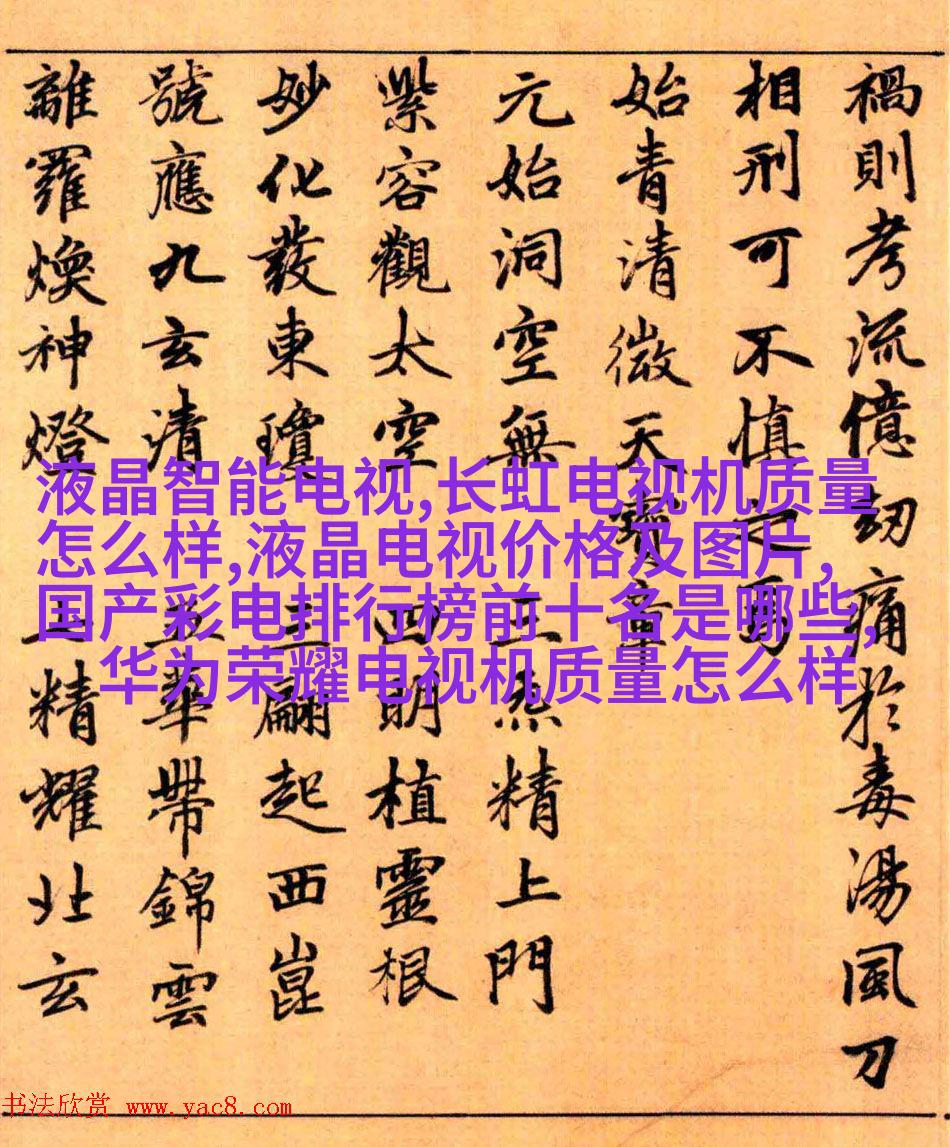 禍則考流億劫痛於毒湯風刀
相刑可不慎之焉
始青清微天寶章
元始洞空無 炁精上門
紫容觀太空 四明植靈根
妙化發東瓊 三翮起西崑
號應九玄清 五華帶錦雲
離羅煥神燈 精耀北玄
液晶智能电视,长虹电视机质量
怎么样,液晶电视价格及图片,
国产彩电排行榜前十名是哪些,
华为荣耀电视机质量怎么样
书法欣赏 www.yac8.com